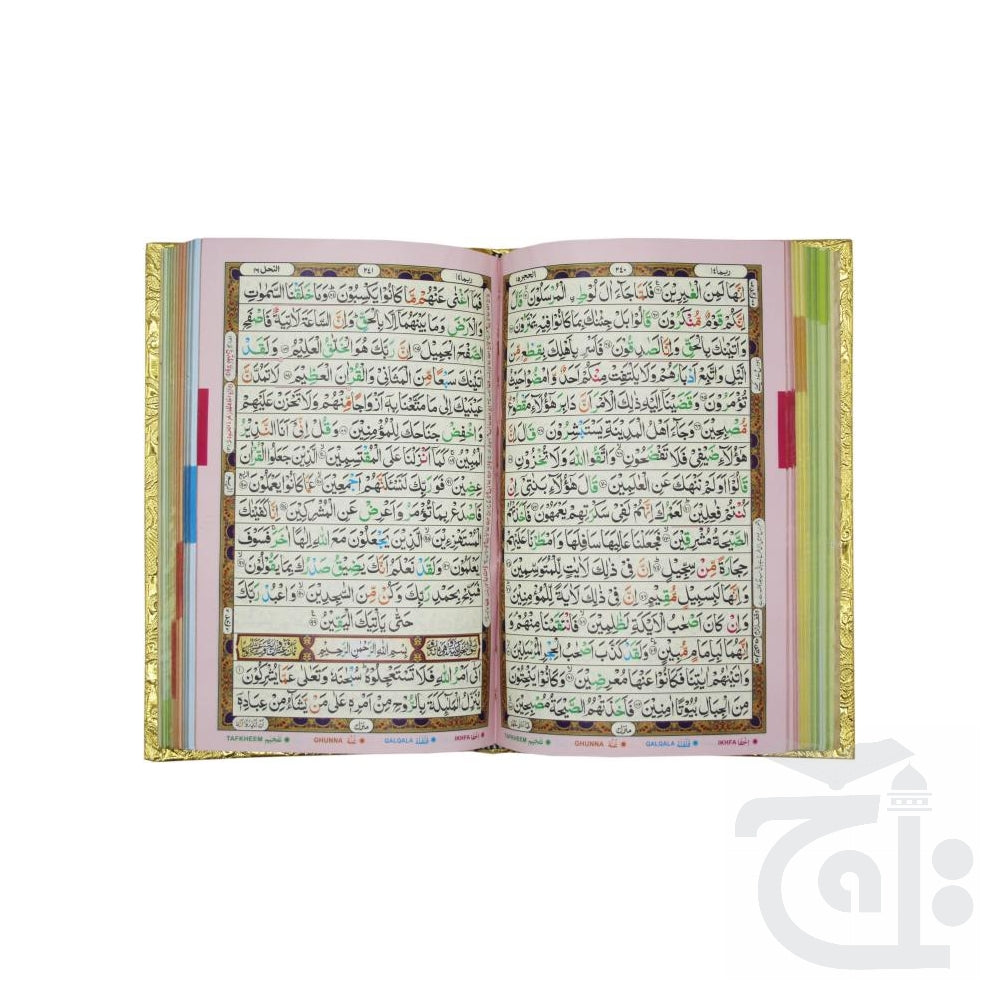 ربما ١٤
٢٤٠
الحجر ١٥
اِنَّهَا لَمِنَ الْغٰبِرِيْنَ ۝ فَلَمَّا جَآءَ اٰلَ لُوْطِ ِۨالْمُرْسَلُوْنَ ۝ قَالَ
اِنَّكُمْ قَوْمٌ مُّنْكَرُوْنَ ۝ قَالُوْا بَلْ جِئْنٰكَ بِمَا كَانُوْا فِيْهِ يَمْتَرُوْنَ ۝
وَ اَتَيْنٰكَ بِالْحَقِّ وَ اِنَّا لَصٰدِقُوْنَ ۝ فَاَسْرِ بِاَهْلِكَ بِقِطْعٍ مِّنَ
الَّيْلِ وَاتَّبِعْ اَدْبَارَهُمْ وَلَا يَلْتَفِتْ مِنْكُمْ اَحَدٌ وَّامْضُوْا حَيْثُ
تُؤْمَرُوْنَ ۝ وَ قَضَيْنَآ اِلَيْهِ ذٰلِكَ الْاَمْرَ اَنَّ دَابِرَ هٰٓؤُلَآءِ مَقْطُوْعٌ
مُّصْبِحِيْنَ ۝ وَ جَآءَ اَهْلُ الْمَدِيْنَةِ يَسْتَبْشِرُوْنَ ۝ قَالَ اِنَّ
هٰٓؤُلَآءِ ضَيْفِيْ فَلَا تَفْضَحُوْنِ ۝ وَ اتَّقُوا اللّٰهَ وَلَا تُخْزُوْنِ ۝
قَالُوْٓا اَوَلَمْ نَنْهَكَ عَنِ الْعٰلَمِيْنَ ۝ قَالَ هٰٓؤُلَآءِ بَنٰتِيْٓ اِنْ
كُنْتُمْ فٰعِلِيْنَ ۝ لَعَمْرُكَ اِنَّهُمْ لَفِيْ سَكْرَتِهِمْ يَعْمَهُوْنَ ۝ فَاَخَذَتْهُمُ
الصَّيْحَةُ مُشْرِقِيْنَ ۝ فَجَعَلْنَا عَالِيَهَا سَافِلَهَا وَ اَمْطَرْنَا عَلَيْهِمْ
حِجَارَةً مِّنْ سِجِّيْلٍ ۝ اِنَّ فِيْ ذٰلِكَ لَاٰيٰتٍ لِّلْمُتَوَسِّمِيْنَ ۝
وَ اِنَّهَا لَبِسَبِيْلٍ مُّقِيْمٍ ۝ اِنَّ فِيْ ذٰلِكَ لَاٰيَةً لِّلْمُؤْمِنِيْنَ ۝
وَ اِنْ كَانَ اَصْحٰبُ الْاَيْكَةِ لَظٰلِمِيْنَ ۝ فَانْتَقَمْنَا مِنْهُمْ وَ
اِنَّهُمَا لَبِاِمَامٍ مُّبِيْنٍ ۝ وَ لَقَدْ كَذَّبَ اَصْحٰبُ الْحِجْرِ الْمُرْسَلِيْنَ ۝
وَ اٰتَيْنٰهُمْ اٰيٰتِنَا فَكَانُوْا عَنْهَا مُعْرِضِيْنَ ۝ وَ كَانُوْا يَنْحِتُوْنَ
مِنَ الْجِبَالِ بُيُوْتًا اٰمِنِيْنَ ۝ فَاَخَذَتْهُمُ الصَّيْحَةُ مُصْبِحِيْنَ ۝
منزل ٣
TAFKHEEM تفخيم GHUNNA غنّه QALQALA قلقله IKHFA اخفا
ربما ١٤
٢٤١
النحل ١٦
فَمَآ اَغْنٰى عَنْهُمْ مَّا كَانُوْا يَكْسِبُوْنَ ۝ وَمَا خَلَقْنَا السَّمٰوٰتِ
وَ الْاَرْضَ وَ مَا بَيْنَهُمَآ اِلَّا بِالْحَقِّ وَ اِنَّ السَّاعَةَ لَاٰتِيَةٌ فَاصْفَحِ
الصَّفْحَ الْجَمِيْلَ ۝ اِنَّ رَبَّكَ هُوَ الْخَلّٰقُ الْعَلِيْمُ ۝ وَ لَقَدْ
اٰتَيْنٰكَ سَبْعًا مِّنَ الْمَثَانِيْ وَ الْقُرْاٰنَ الْعَظِيْمَ ۝ لَا تَمُدَّنَّ
عَيْنَيْكَ اِلٰى مَا مَتَّعْنَا بِهٖٓ اَزْوَاجًا مِّنْهُمْ وَلَا تَحْزَنْ عَلَيْهِمْ
وَ اخْفِضْ جَنَاحَكَ لِلْمُؤْمِنِيْنَ ۝ وَ قُلْ اِنِّيْٓ اَنَا النَّذِيْرُ
الْمُبِيْنُ ۝ كَمَآ اَنْزَلْنَا عَلَى الْمُقْتَسِمِيْنَ ۝ الَّذِيْنَ جَعَلُوا الْقُرْاٰنَ
عِضِيْنَ ۝ فَوَرَبِّكَ لَنَسْـَٔلَنَّهُمْ اَجْمَعِيْنَ ۝ عَمَّا كَانُوْا يَعْمَلُوْنَ ۝
فَاصْدَعْ بِمَا تُؤْمَرُ وَ اَعْرِضْ عَنِ الْمُشْرِكِيْنَ ۝ اِنَّا كَفَيْنٰكَ
الْمُسْتَهْزِءِيْنَ ۝ الَّذِيْنَ يَجْعَلُوْنَ مَعَ اللّٰهِ اِلٰهًا اٰخَرَ فَسَوْفَ
يَعْلَمُوْنَ ۝ وَ لَقَدْ نَعْلَمُ اَنَّكَ يَضِيْقُ صَدْرُكَ بِمَا يَقُوْلُوْنَ ۝
فَسَبِّحْ بِحَمْدِ رَبِّكَ وَ كُنْ مِّنَ السّٰجِدِيْنَ ۝ وَ اعْبُدْ رَبَّكَ
حَتّٰى يَاْتِيَكَ الْيَقِيْنُ ۝
بِسْمِ اللّٰهِ الرَّحْمٰنِ الرَّحِيْمِ
اَتٰٓى اَمْرُ اللّٰهِ فَلَا تَسْتَعْجِلُوْهُ سُبْحٰنَهٗ وَ تَعٰلٰى عَمَّا يُشْرِكُوْنَ ۝
يُنَزِّلُ الْمَلٰٓئِكَةَ بِالرُّوْحِ مِنْ اَمْرِهٖ عَلٰى مَنْ يَّشَآءُ مِنْ عِبَادِهٖٓ
منزل ٣
TAFKHEEM تفخيم GHUNNA غنّه QALQALA قلقله IKHFA اخفا